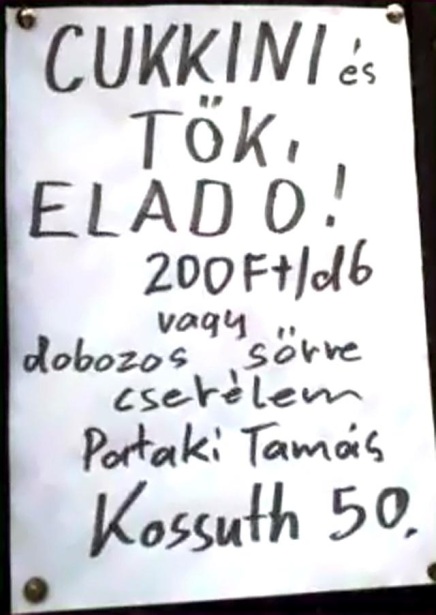 CUKKINI és
TÖK,
ELADÓ!
200Ft/db
vagy
dobozos sörre
cserélem
Pataki Tamás
Kossuth 50.